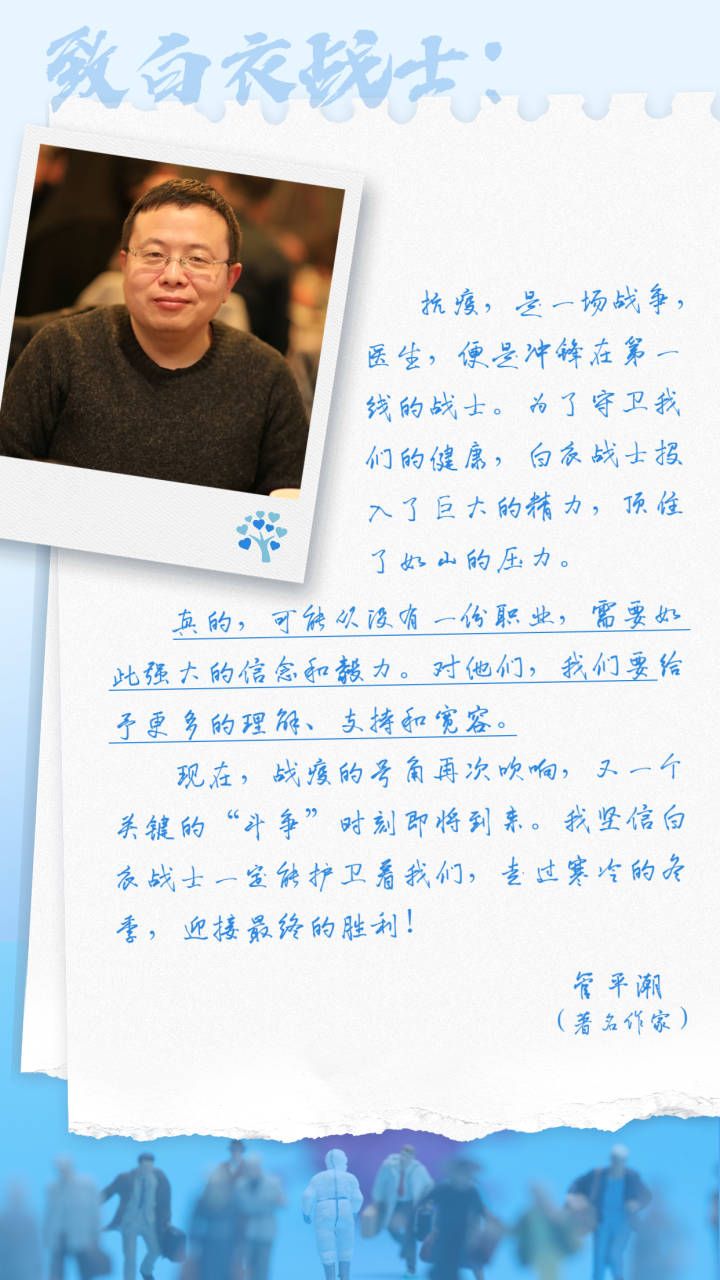 致白衣战士：
抗疫，是一场战争，
医生，便是冲锋在第一
线的战士。为了守卫我
们的健康，白衣战士投
入了巨大的精力，顶住
了如山的压力。
真的，可能从没有一份职业，需要如
此强大的信念和毅力。对他们，我们要给
予更多的理解、支持和宽容。
现在，战疫的号角再次吹响，又一个
关键的“斗争”时刻即将到来。我坚信白
衣战士一定能护卫着我们，走过寒冷的冬
季，迎接最终的胜利！
管平潮
（著名作家）